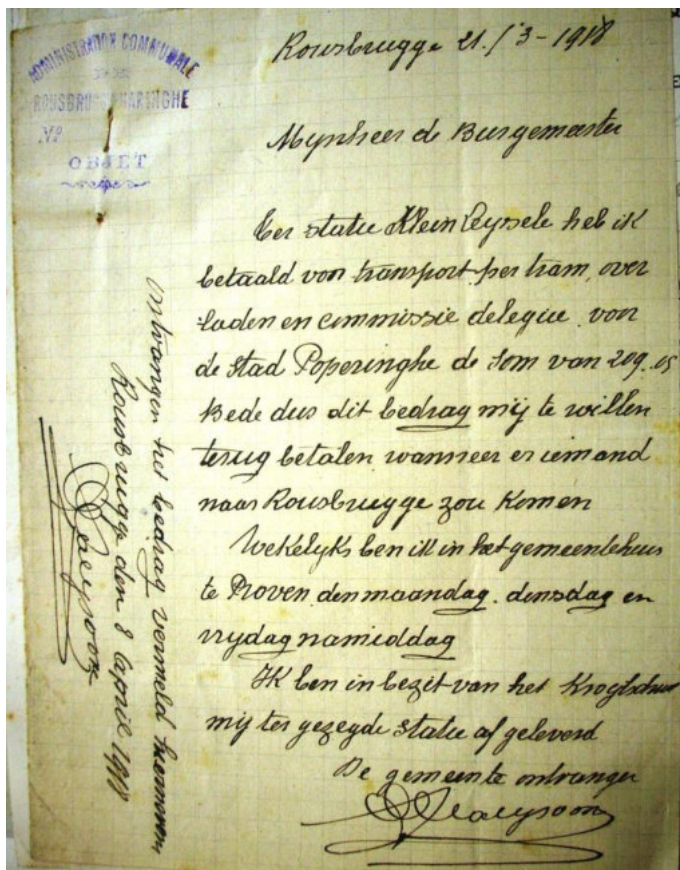 ADMINISTRATION COMMUNALE
DE
ROUSBRUGGE-HARINGHE
Nº
OBJET
Rousbrugge 21/3-1918
Mynheer de Burgemeester
Ter statie Klein Leysele heb ik
betaald voor transport per tram, over
laden en commissie delegue voor
de stad Poperinghe de som van 209.05
Bede dus dit bedrag mij te willen
terug betalen wanneer er iemand
naar Rousbrugge zou komen
Wekelyks ben ik in het gemeentehuus
te Proven den maandag. densdag en
vrydag namiddag
Ik ben in bezit van het
mij ter gezegde statie af geleverd
De gemeente ontvanger
ontvangen het bedrag vermeld hierneven
Rousbrugge den 8 April 1918